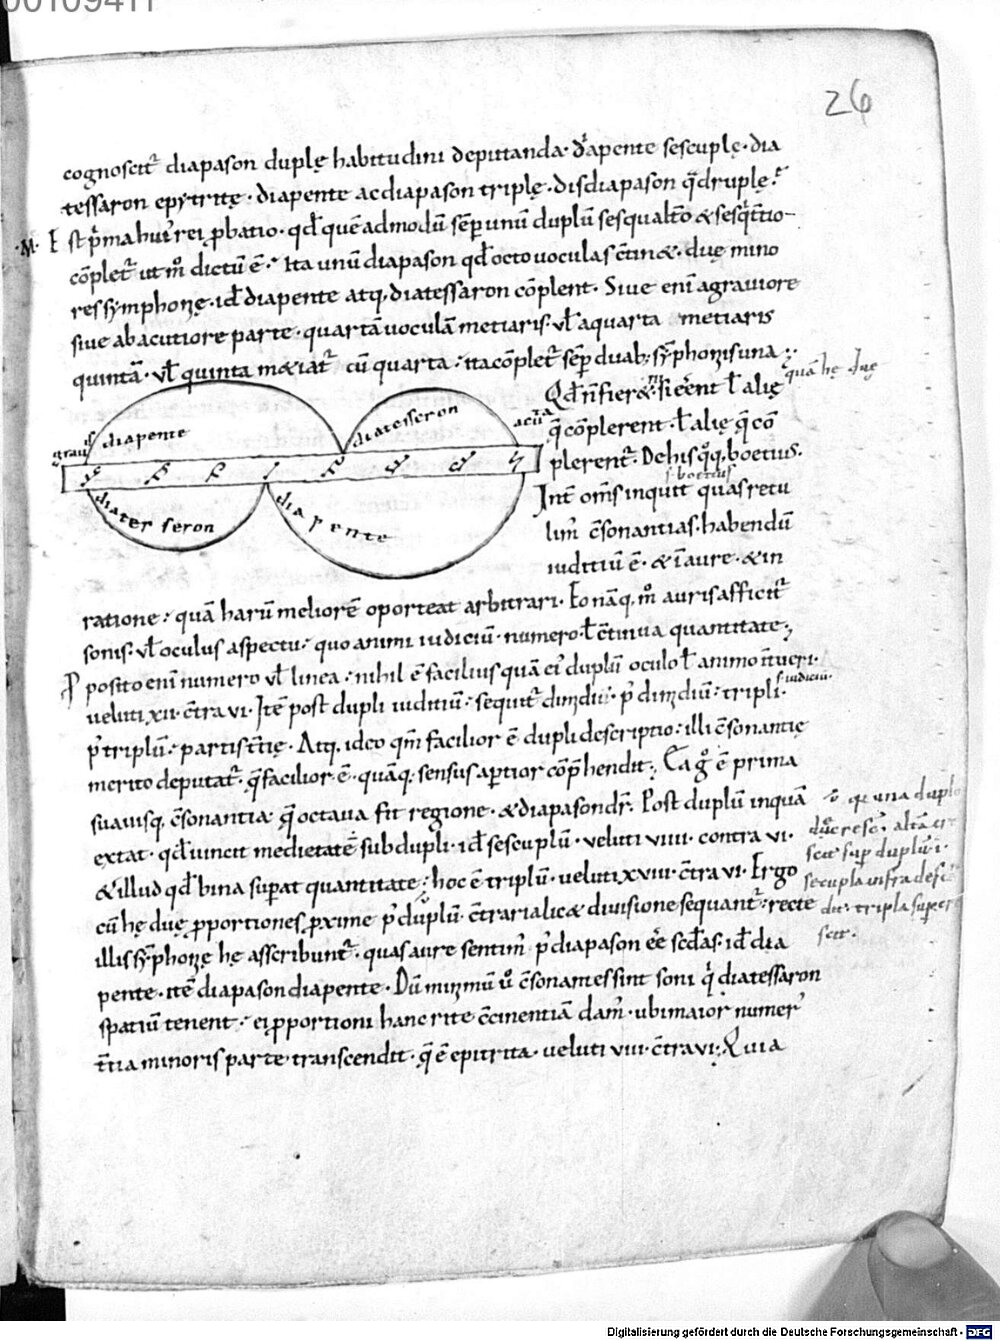 00109411
26
cognoscit᷑ diapason duplę habitudini deputanda· d'apente sescuplę· dia
tessaron epytritę· diapente ac diapason triplę· disdiapason qͣdruplę·
·M· Est pͥma hui᷒ rei ꝓbatio· qd̄ quē admodū sēp unū duplū sesqualtͦo & sesqͥtͨio-
cōplet᷑ ut m̊ dictū ē· Ita unū diapason qd̄ octo voculas ctin&· duę mino
res symphonię· id̄ diapente atq, diatessaron cōplent· Sive enī a graviore
sive ab acutiore parte· quartā voculā metiaris· vl̄ a quarta metiaris
quintā· vl̄ quinta mediat᷑ cū quarta· ita cōplet᷑ sēp duab; sȳphoniis una·
quā hę duę
Qd̄ n̄ fier&· si eēent l̄ alię
q̄ cōplerent· l̄ alię q̄ cō
plerent᷑. De his qͦq, boetius·
s· boetius
Int̄ om̄s inquit quas retu
lim᷒ c̄sonantias· habendū
iuditiū ē· & ī aure· & in
gravis diapente diatesseron acuta
diatesseron
diapente
ratione· quā harū meliorē oporteat arbitrari· Eo naq, m̊ auris afficit᷑
sonis· vl̄ oculus aspectu· quo animi iudiciū· numero l̄ c̄tinua quantitate;
Pposito enī numero vl̄ linea· nihil ē facilius quā ei᷒ duplū oculo l̄ animo intueri·
s· iudiciū·
veluti xii· c̄tra vi· Itē post dupli iuditiū· sequit᷑ dimidii· p᷒ dimidiū· tripli·
p᷒ triplū· partis t̄tię· Atq, ideo qm̄ facilior ē dupli descriptio· illi c̄sonantię
merito deputat᷑· q̄ facilior ē· quāq, sensus aptior cōp̄hendit; Ea g̊ ē prima
suavisq, c̄sonantia q̄ octava fit regione· & diapason dr̄· Post duplū inquā
extat· qd̄ vincit medietatē subdupli· id̄ sescuplū· veluti viiii· contra vi·
& illud qd̄ bina supat quantitate· hoc ē triplū· veluti xviii· c̄tra vi· Ergo
cū hę duę ꝓportiones ꝓxime p᷒ duplū c̄traria lic& divisione sequant᷑· recte
illis sȳphonię hę asscribunt᷑· quas aure sentim᷒ p᷒ diapason eē scd̄as· id̄ dia
pente· itē diapason diapente· Dū minimū v̊ c̄sonantes sint soni qͥ diatessaron
spatiū tenent· ei ꝓportioni hanc rite c̄cinentiā dam᷒· ubi maior numer᷒
t̄tia minoris parte transcendit· q̄ ē epitrita· veluti viii· c̄tra vi; Quia
una duplo
crescͭ· altā
scit sup duplū· i·
secupla infra
tripla supe
scit·
Digitalisierung gefördert durch die Deutsche Forschungsgemeinschaft - DFG